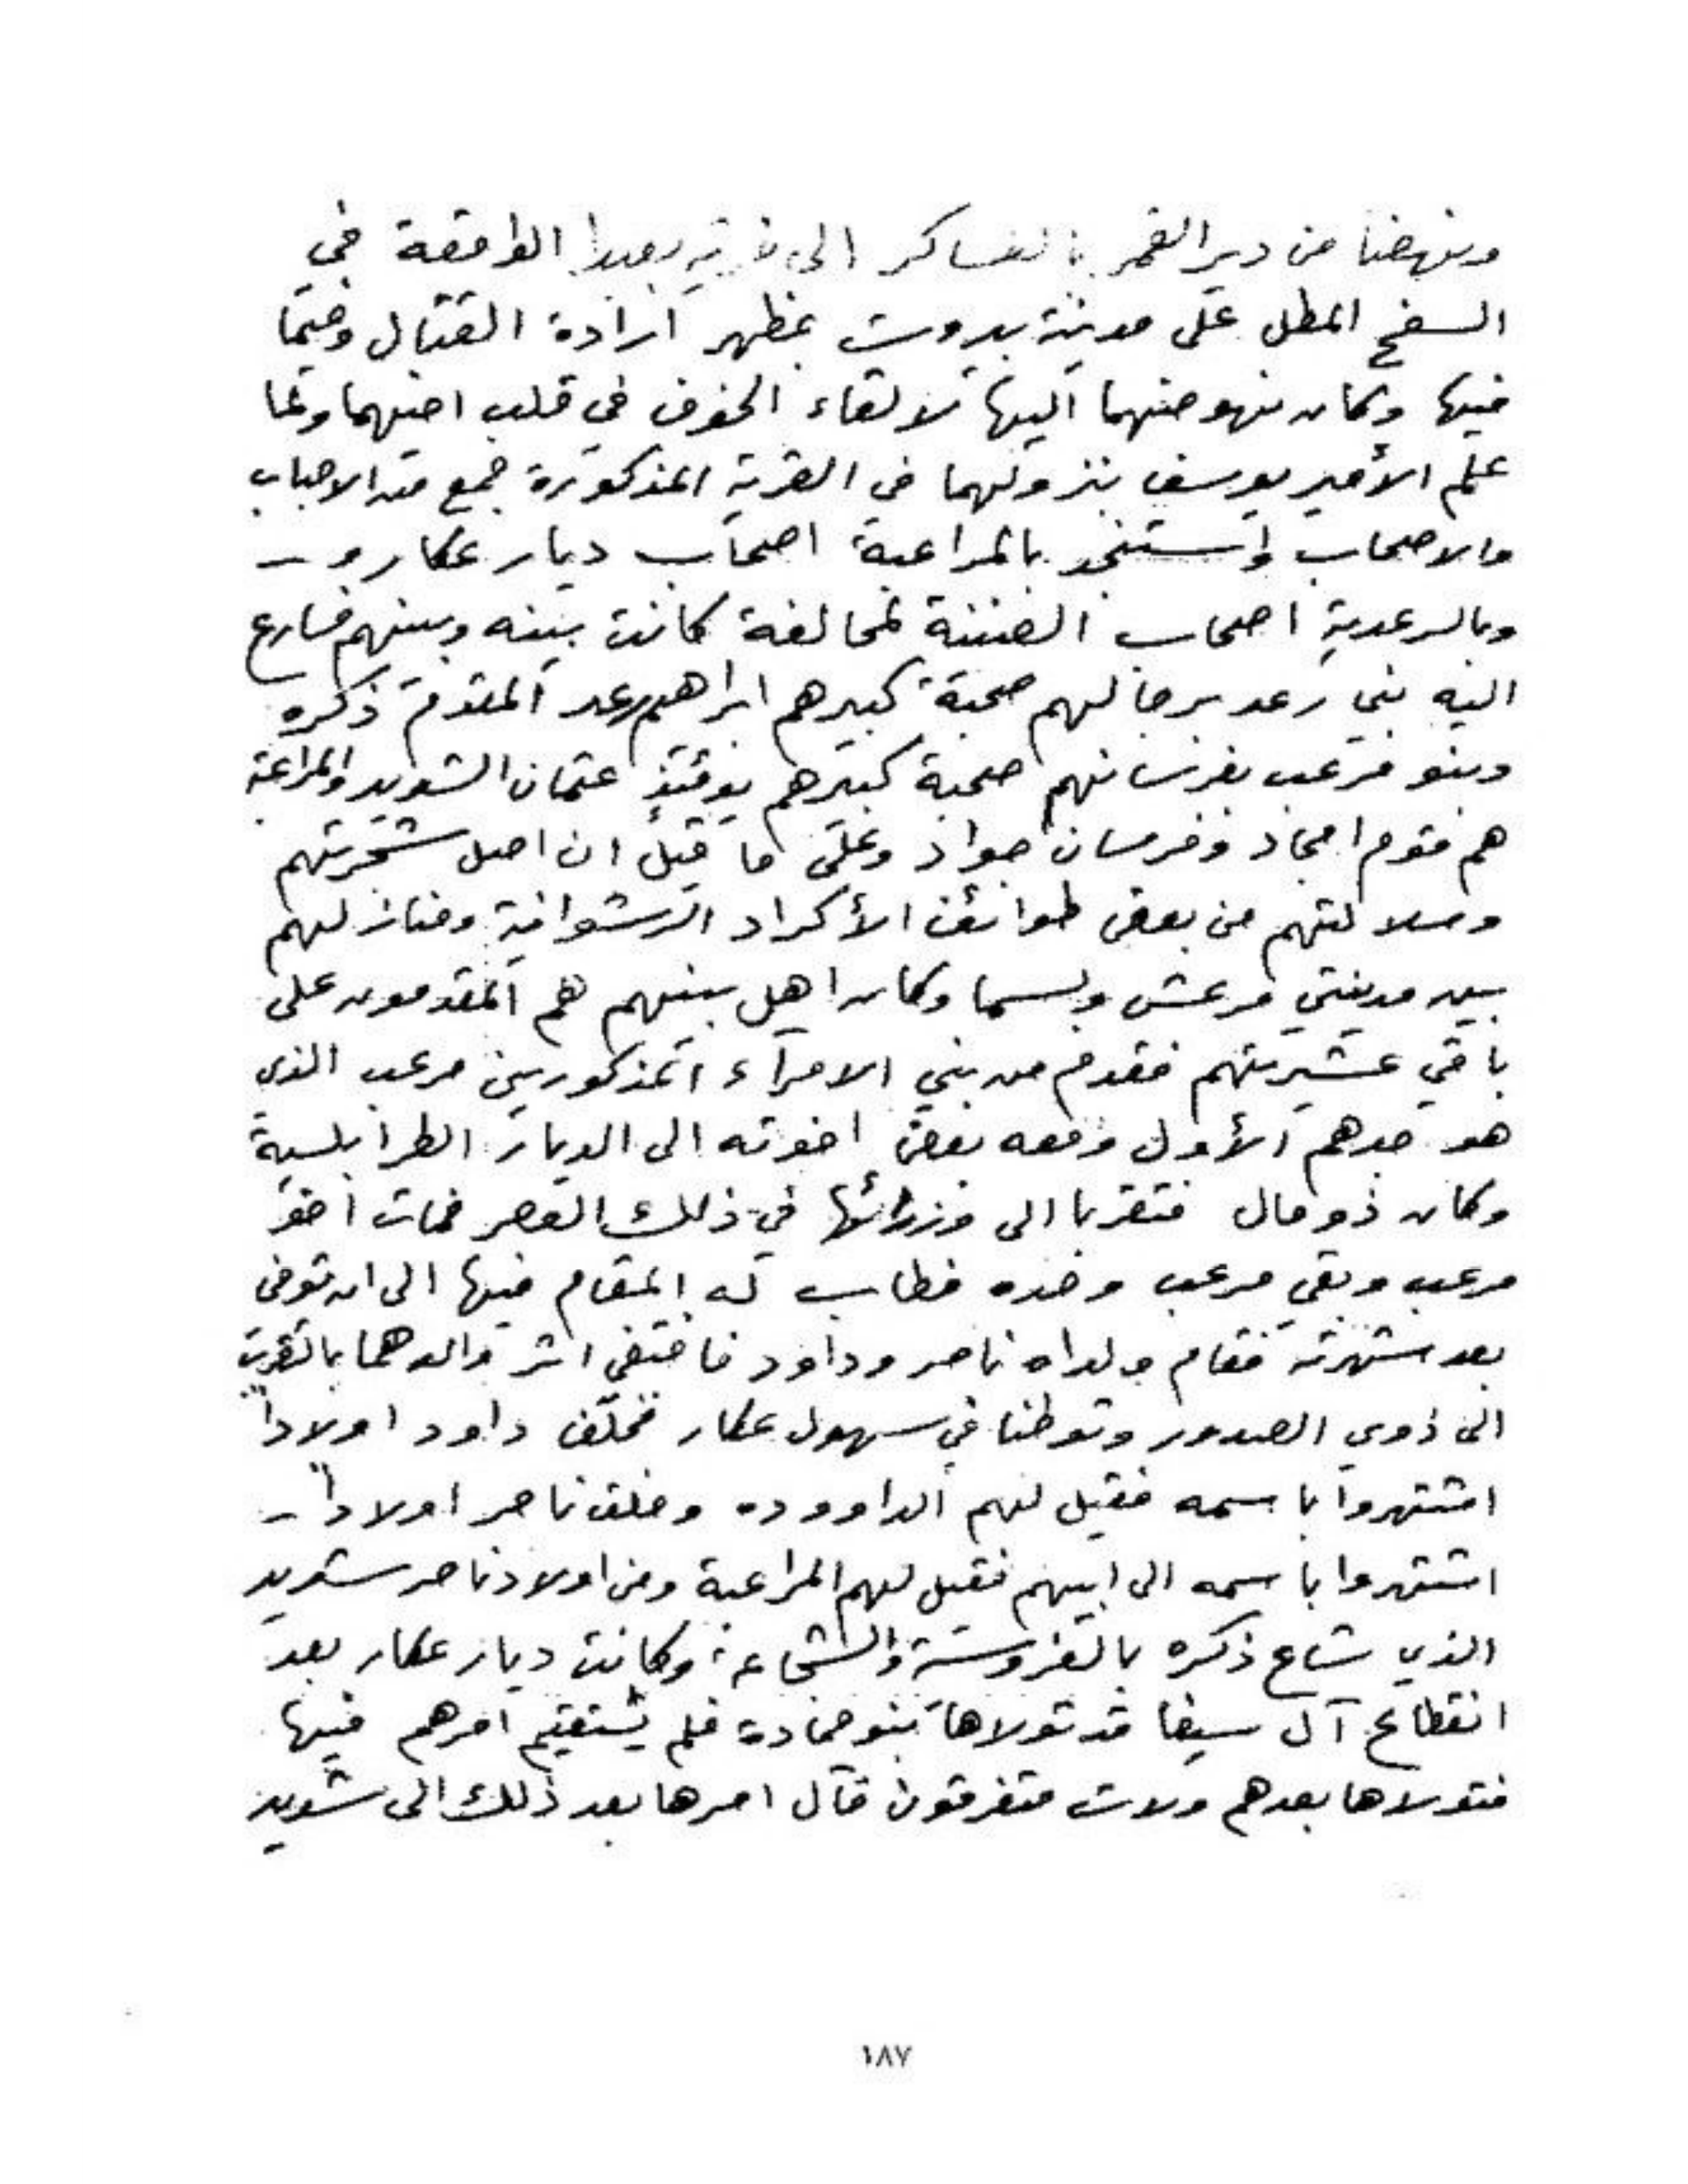 ونهضا من دير القمر بالعساكر الى قرية بعبدا الواقعة في
السفح المطل على مدينة بيروت بمظهر ارادة القتال وخيما
فيها وكان نهوضهما اليها لالقاء الخوف في قلب اخيهما ولما
علم الأمير يوسف بنزولهما في القرية المذكورة جمع من الاحباب
والاصحاب واستنجد بالمراعبة اصحاب ديار عكار و –
وبالرعدية اصحاب الضنية لمحالفة كانت بينه وبينهم فسارع
اليه بني رعد برجالهم صحبة كبيرهم ابراهيم رعد المقدم ذكره
وبنو مرعب بفرسانهم صحبة كبيرهم يوقتئذٍ عثمان الشديد والمراعبة
هم قوم امجاد وفرسان جواد وعلى ما قيل ان اصل شجرتهم
وسلالتهم من بعض طوائف الأكراد الرشوانية ومنازلهم
بين مدينتي مرعش وبسما وكان اهل بيتهم هم المقدمون على
باقي عشيرتهم فقدم من بني الامراء المذكورين مرعب الذي
هو جدهم الأول ومعه بعض اخوته الى الديار الطرابلسية
وكان ذو مال فتقربا الى وزرائها في ذلك العصر فمات اخو
مرعب وبقي مرعب وحده فطاب له المقام فيها الى ان توفى
بعد شهرته فقام ولداه ناصر وداود فاقتفى اثر والدهما بالتقرب
الى ذوي الصدور وتوطنا في سهول عكار فخلّف داود اولاداً
اشتهروا باسمه فقيل لهم الداووده وخلف ناصر اولاداً –
اشتهروا باسمه الى ابيهم فقيل لهم المراعبة ومن اولاد ناصر شديد
الذي شاع ذكره بالفروسة والشجاعة وكانت ديار عكار بعد
انقطاع آل سيفا قد تولاها بنو حمادة فلم يستقيم امرهم فيها
فتولاها بعدهم ولات متفرقون فآل امرها بعد ذلك الى شديد
١٨٧